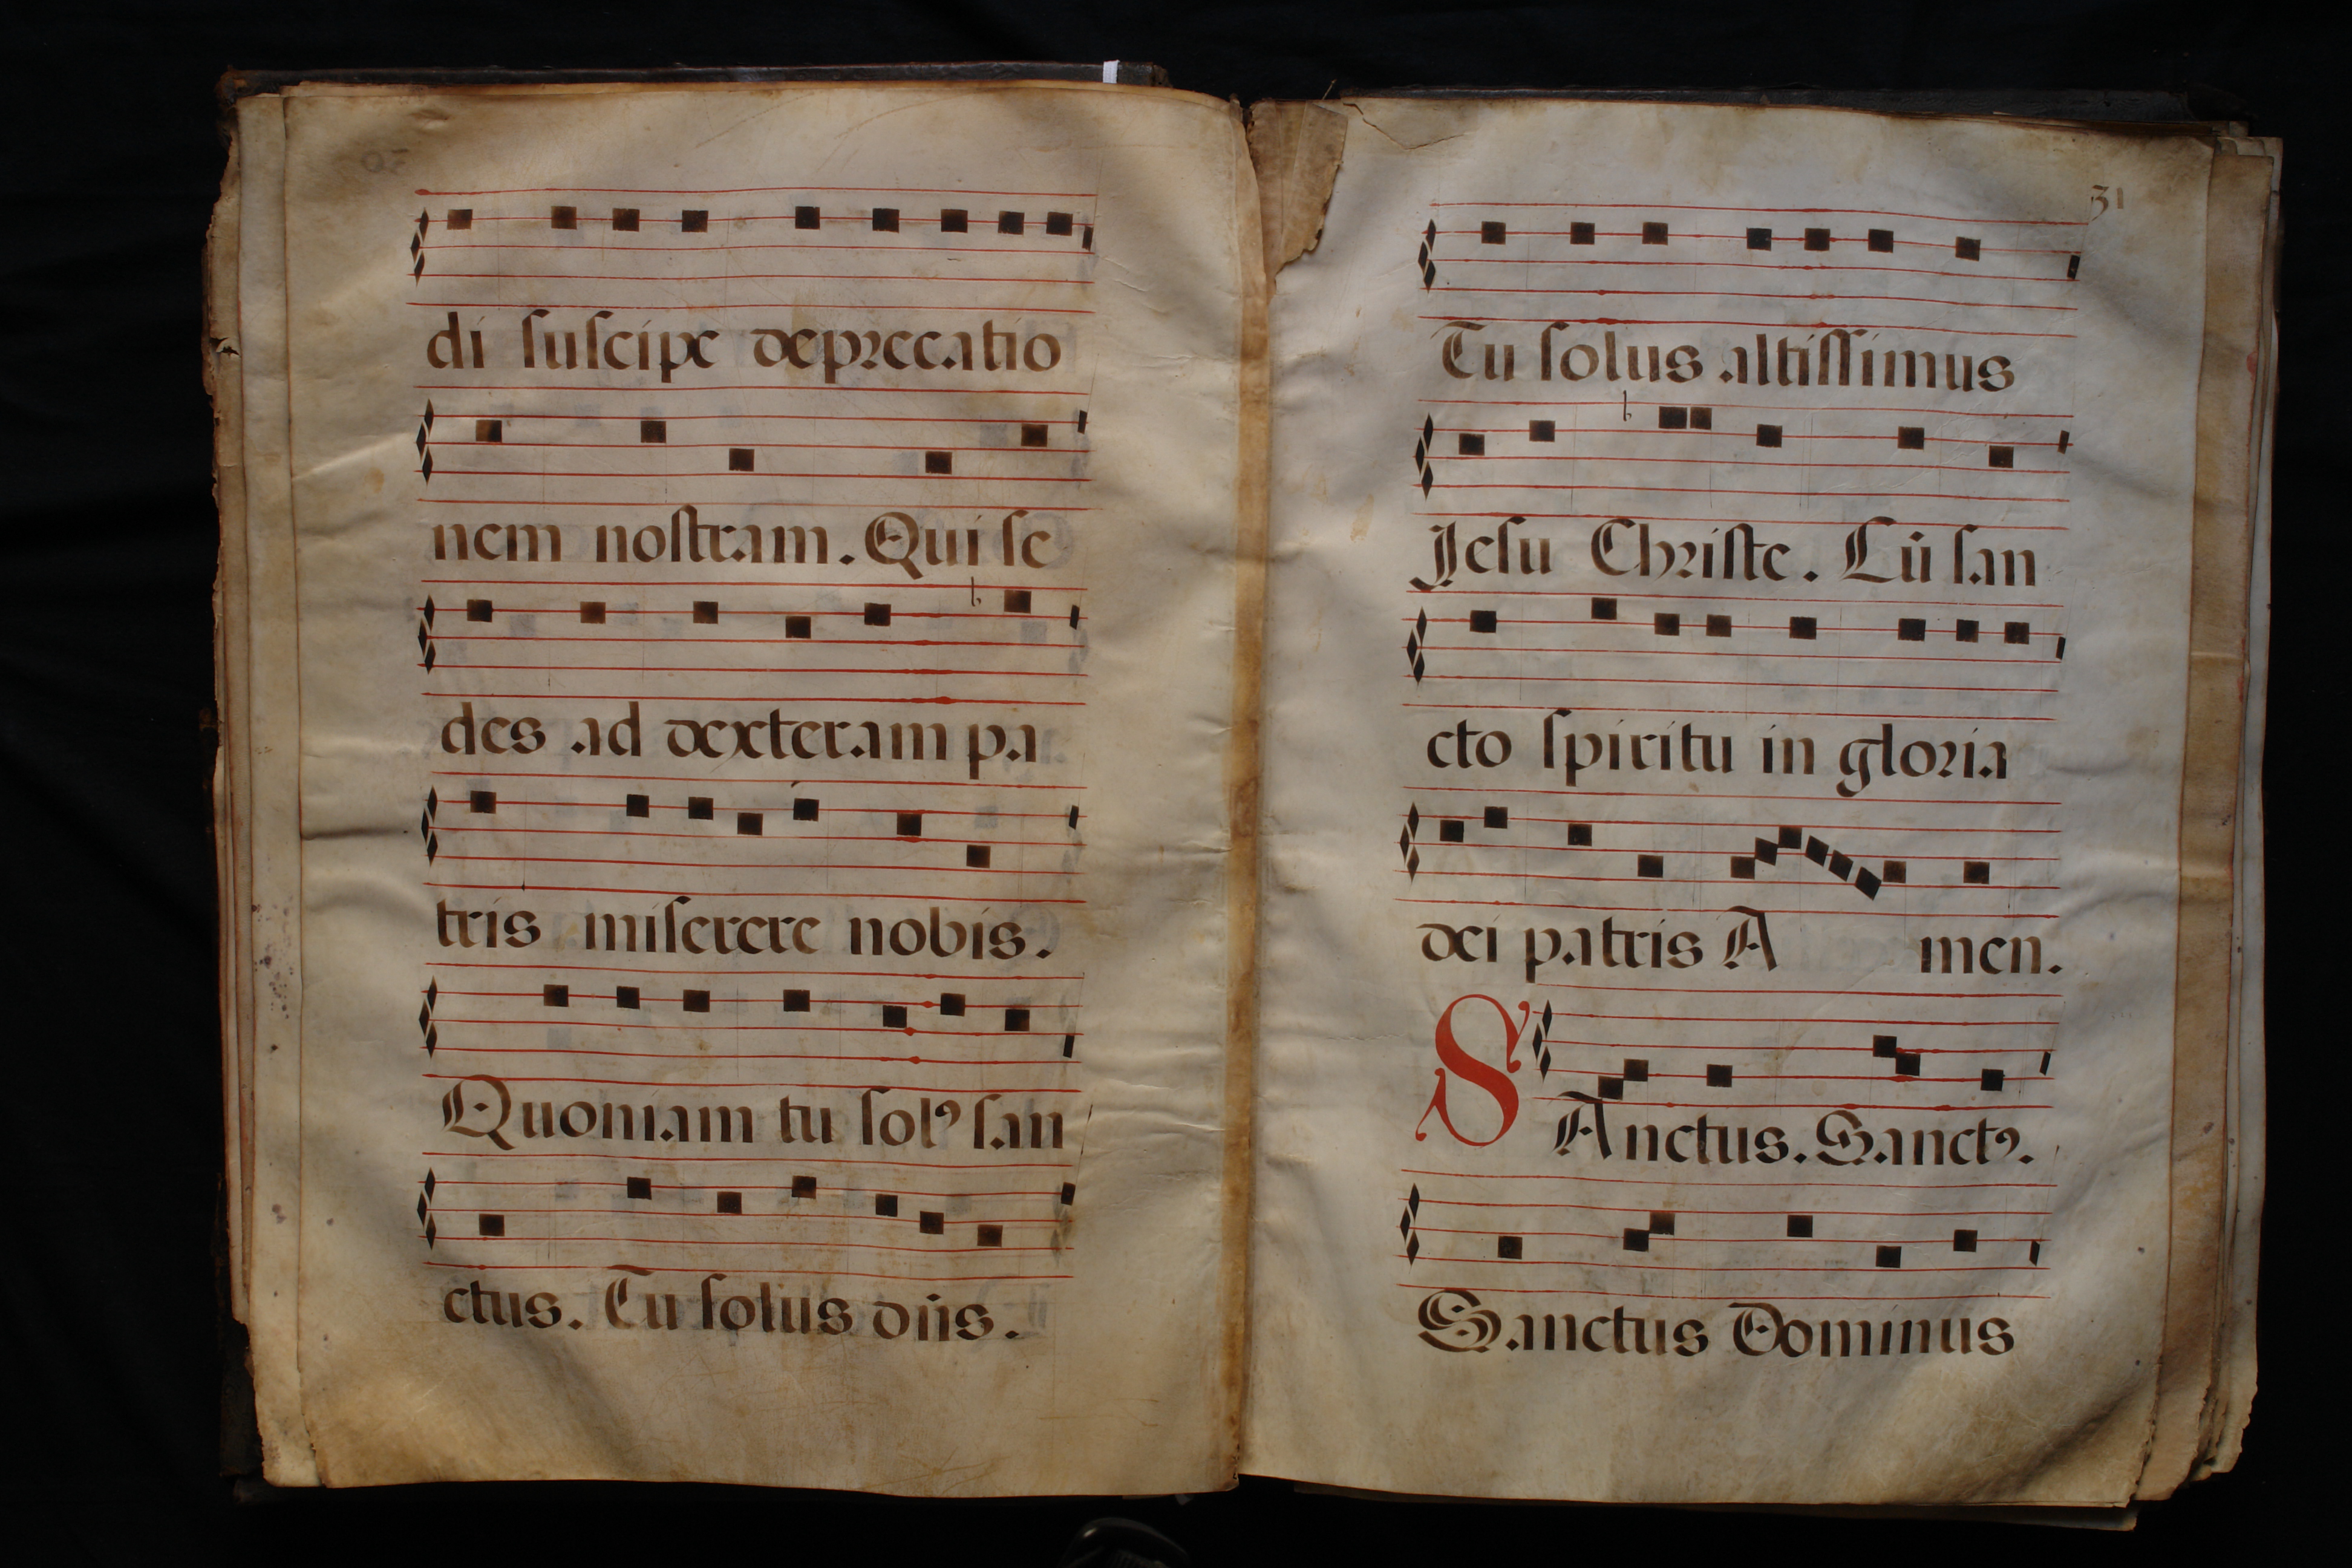 di suscipe deprecatio
nem nostram. Qui se
des ad dexteram pa
tris miserere nobis.
Quoniam tu solꝰ san
ctus. Tu solus dn̄s.
31
Tu solus altissimus
Jesu Christe. Cū san
cto spiritu in gloria
dei patris A men.
SAnctus. Sanctꝰ.
Sanctus Dominus